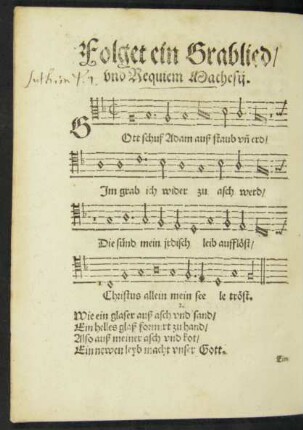 Folget ein Grablied/
vnd Requiem Mathesij.
GOtt schuf Adam auß staub vñ erd/
Im grab ich wider zu asch werd/
Die sünd mein jrdisch leib aufflöst/
Christus allein mein see le tröst.
2.
Wie ein glaser auß asch vnd sand/
Ein helles glaß formirt zu hand/
Also auß meiner asch vnd kot/
Ein newen leyb macht vnser Gott.
Ein